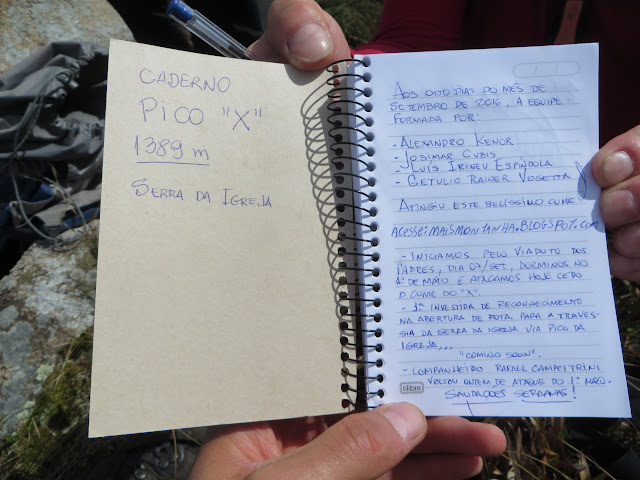 CADERNO
PICO "X"
1389 m
SERRA DA IGREJA
AOS OITO DIAS DO MÊS DE
SETEMBRO DE 2016, A EQUIPE
FORMADA POR:
- ALEXANDRO KENOR
- JOSIMAR CUBIS
- LUIS IRINEU ESPÍNDOLA
- GETULIO RAINER VOGETTA
ATINGIU ESTE BELÍSSIMO CUME!
ACESSE: MAISMONTANHA.BLOGSPOT.COM
- INICIAMOS PELO VIADUTO DOS
PADRES, DIA 07/SET, DORMIMOS NO
1º DE MAIO E ATACAMOS HOJE CEDO
O CUME DO "X".
- 1ª INVESTIDA DE RECONHECIMENTO
NA ABERTURA DE ROTA PARA A TRAVES-
SIA DA SERRA DA IGREJA VIA PICO DA
IGREJA...
"COMING SOON".
- COMPANHEIRO RAFAEL CAMPITRINI
VOLTOU ONTEM DE ATAQUE DO 1º MAIO.
SAUDAÇÕES SERRANAS!
tilibra